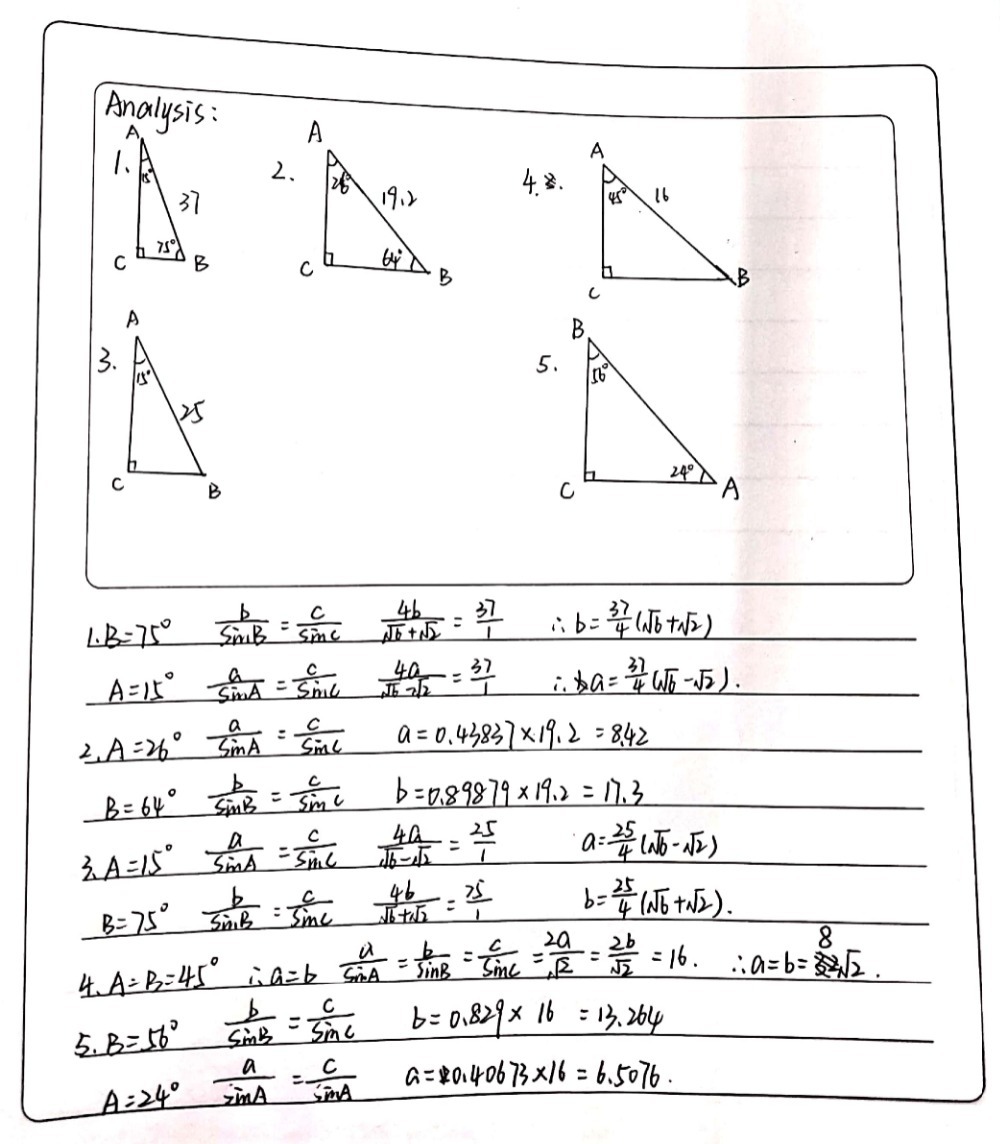 Analysis:
A
1. 15° 37
C 75° B
A
2. 26° 19.2
C 64° B
A
4. 45° 16
C B
A
3. 15° 25
C B
B
5. 56°
C 24° A
1. B=75° b/SinB = c/SinC 4b/√6+√2 = 37/1 ∴ b=37/4(√6+√2)
A=15° a/SinA = c/SinC 4a/√6-√2 = 37/1 ∴ a=37/4(√6-√2).
2. A=26° a/SinA = c/SinC a=0.43837×19.2 =8.42
B=64° b/SinB = c/SinC b=0.89879×19.2 = 17.3
3. A=15° a/SinA = c/SinC 4a/√6-√2 = 25/1 a=25/4(√6-√2)
B=75° b/SinB = c/SinC 4b/√6+√2 = 25/1 b=25/4(√6+√2).
4. A=B=45° ∴a=b a/SinA = b/SinB = c/SinC = 2a/√2 = 2b/√2 = 16. ∴a=b=8√2.
5. B=56° b/SinB = c/SinC b=0.829×16 =13.264
A=24° a/sinA = c/sinA a=0.40673×16=6.5076.